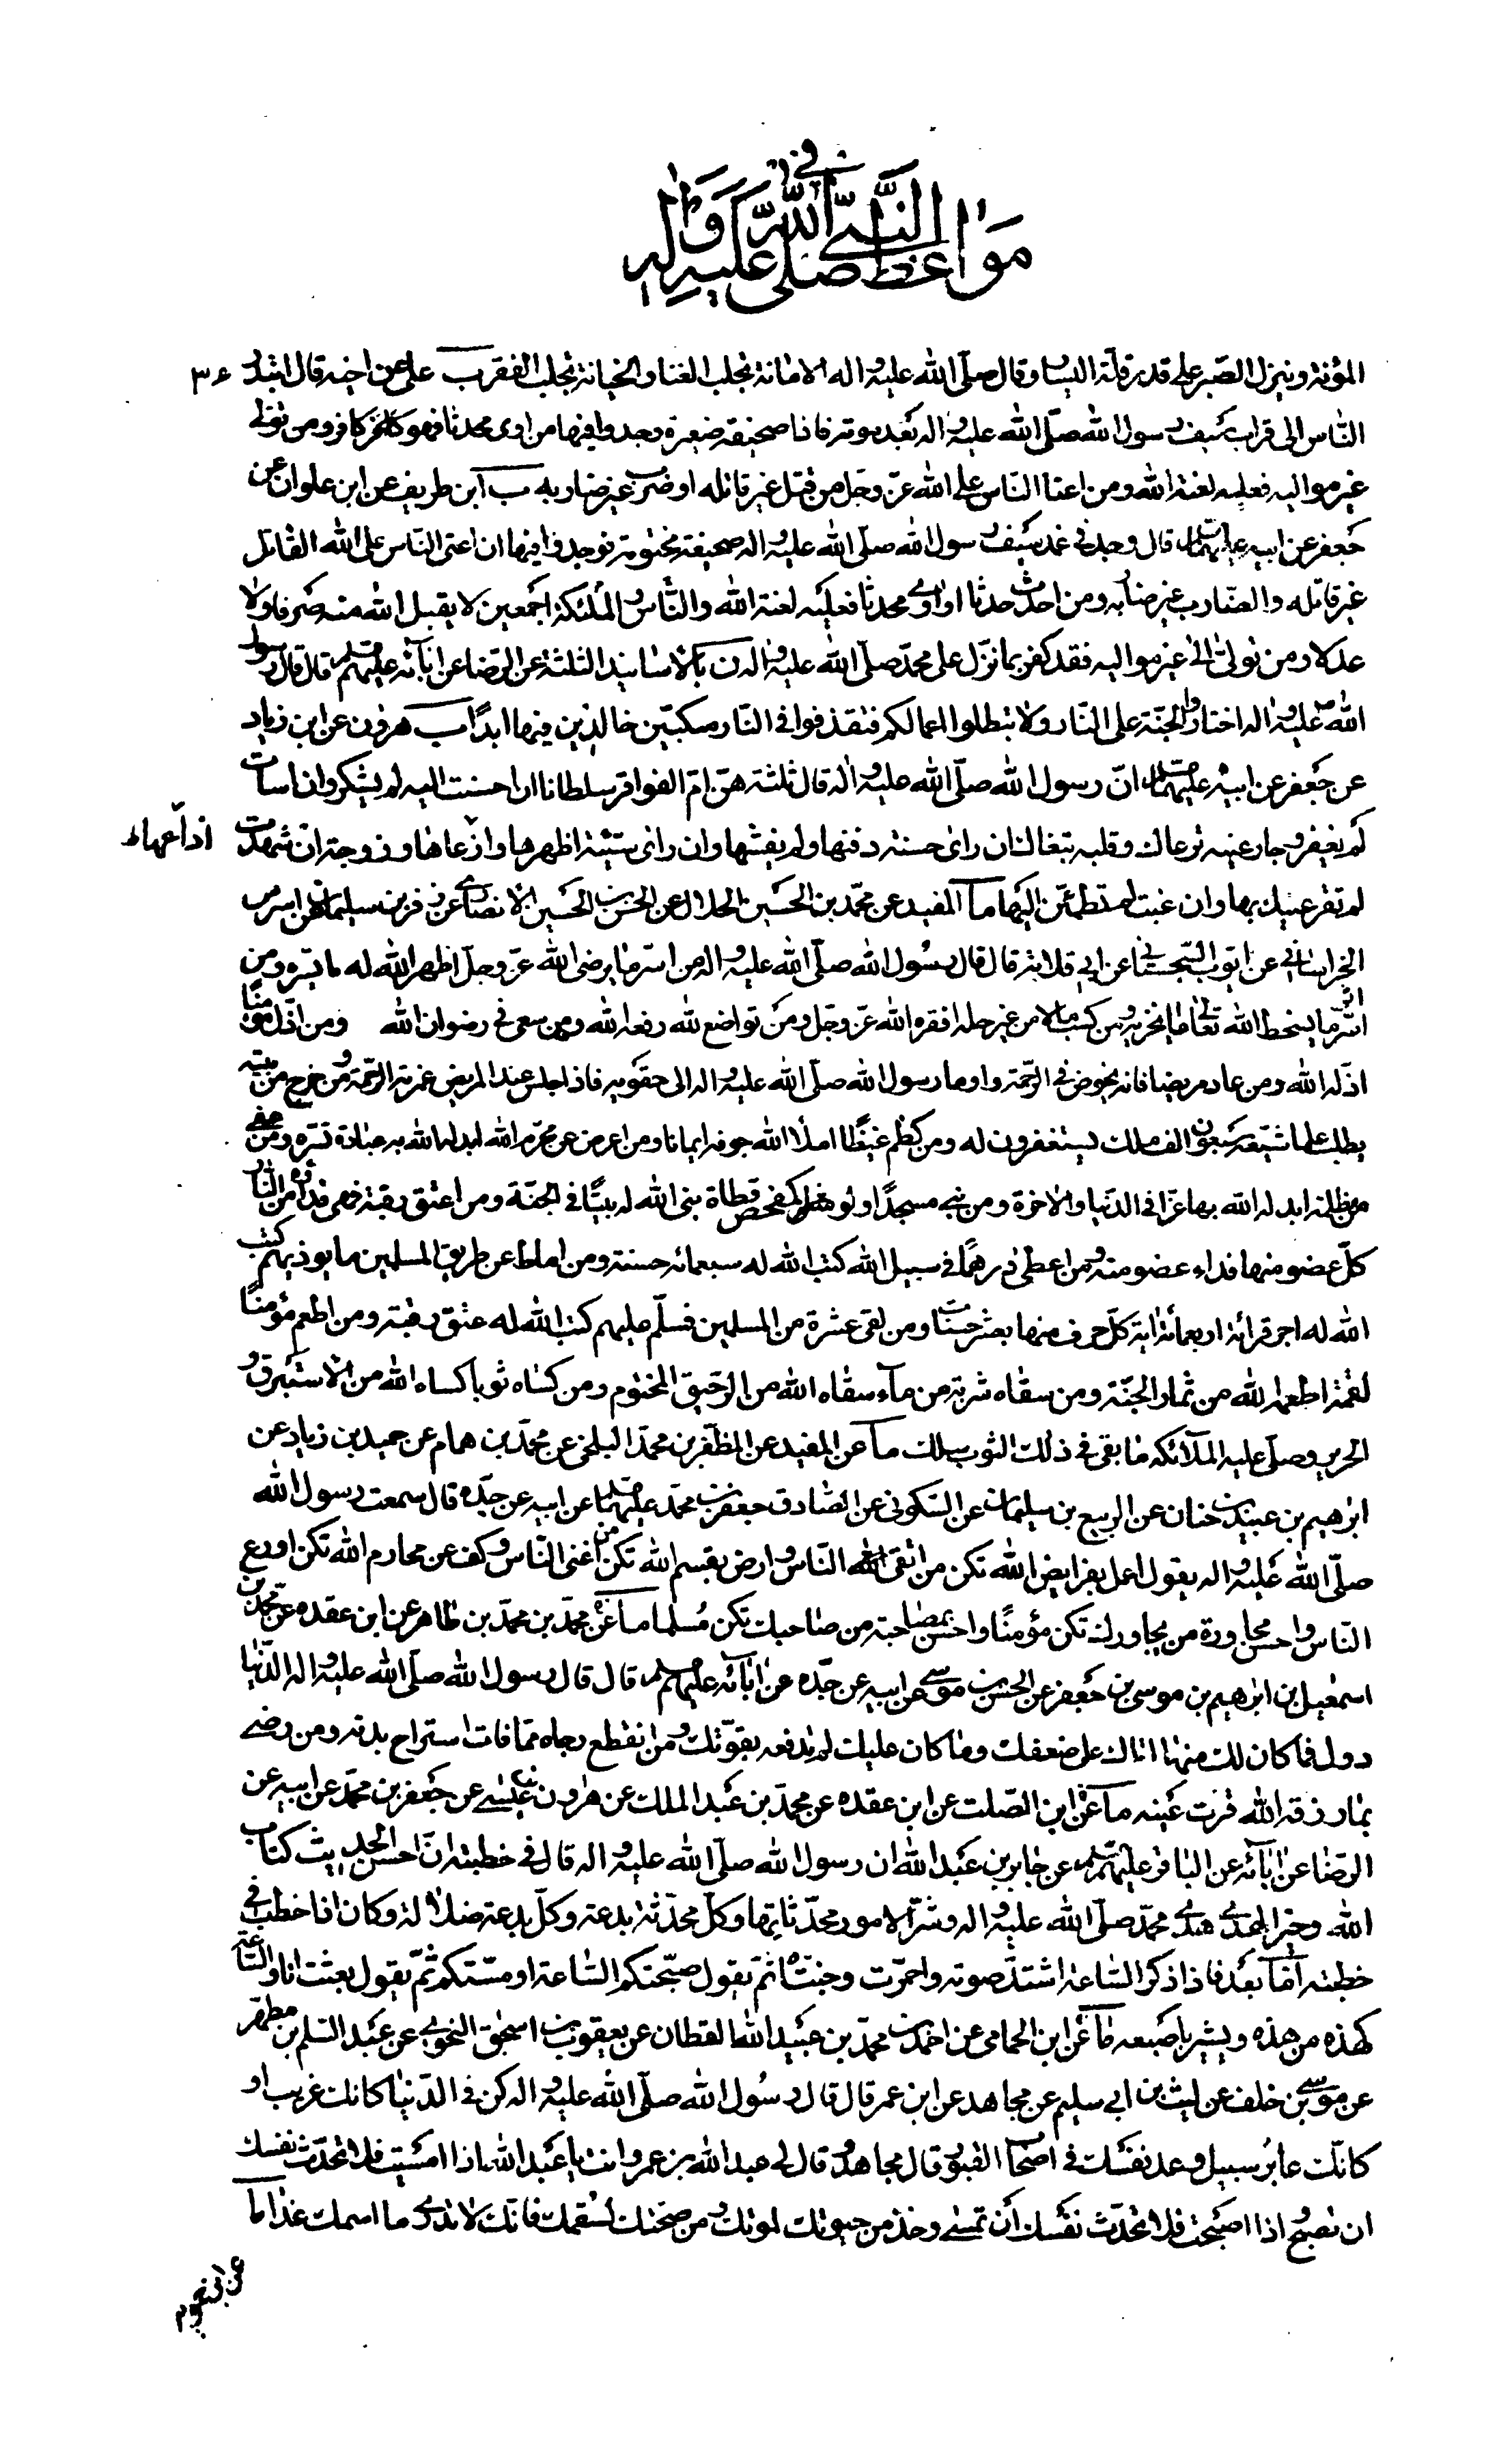 في
مواعظ النبي صلى الله عليه وآله
المؤنة وينزل الصبر على قدر قلة اليسار وقال صلّى الله عليه واله الامانة تجلب الغنا والخيانة تجلب الفقر ب علي عن اخيه قال ابتدر
الناس الى قراب سيف رسول الله صلّى الله عليه واله بعد موته فاذا صحيفة صغيرة وجدوا فيها من اوى محدثا فهو كافر ومن تولى
غير مواليه فعليه لعنة الله ومن اعتا الناس على الله عزّ وجل من قتل غير قاتله او ضرب غير ضاربه ب ابن طريف عن ابن علوان عن
جعفر عن ابيه عليهما السلام قال وجد في غمد سيف رسول الله صلّى الله عليه واله صحيفة مختومة فوجدوا فيها ان اعتى الناس على الله القاتل
غير قاتله والضارب غير ضاربه ومن احدث حدثا او اوى محدثا فعليه لعنة الله والناس والملئكة اجمعين لا يقبل الله منه صرفا ولا
عدلا ومن تولى الى غير مواليه فقد كفر بما نزل على محمد صلّى الله عليه واله ن بالاسانيد الثلثة عن الرضا عن ابائه عليهم السلام قال قال رسول
الله صلى الله عليه واله اختاروا الجنة على النار ولا تبطلوا اعمالكم فتقذفوا في النار منكبّين خالدين فيها ابدا ب هرون عن ابن زياد
عن جعفر عن ابيه عليهما السلام انّ رسول الله صلّى الله عليه واله قال ثلثة هنّ امّ الفواقر سلطان ان احسنت اليه لم يشكر وان اسات
لم يغفر وجار عينه ترعاك وقلبه تبغاك ان راى حسنة دفنها ولم يفشها وان راى سيّئة اظهرها واذاعها وزوجة ان شهدت
اذاعها ط
لم تقر عينك بها وان غبت لم تطمئن اليها ما المفيد عن محمد بن الحسين الحلال عن الحسن بن الحسين الانصاري عن زفر بن سليمان عن اشرس
الخراساني عن ايوب السجستاني عن ابي قلابة قال قال رسول الله صلّى الله عليه واله من اسرّ ما يرضى الله عزّ وجل اظهر الله له ما يسره ومن
اسرّ ما يسخط الله تعالى اظهر الله ما يخزيه ومن كسب مالا من غير حله افقره الله عزّ وجل ومن تواضع لله رفعه الله ومن سعى في رضوان الله ومن اذلّ مؤمنا
اذلّه الله ومن عاد مريضا فانه يخوض في الرحمة واوما رسول الله صلّى الله عليه واله الى حقويه فاذا جلس عند المريض غمرته الرحمة ومن خرج من بيته
يطلب علما شيّعه سبعون الف ملك يستغفرون له ومن كظم غيظا املأ الله جوفه ايمانا ومن اعرض عن محرم الله ابدله الله به عبادة تسره ومن عفى
من مظلمة ابدله الله بها عزّا في الدنيا والاخرة ومن بنى مسجدا ولو كمفحص قطاة بنى الله له بيتا في الجنة ومن اعتق رقبة فهي فداؤه من النار
كلّ عضو منها فداء عضو منه ومن اعطى درهما في سبيل الله كتب الله له سبعمائه حسنة ومن اماط عن طريق المسلمين ما يوذيهم كتب
الله له اجر قرائة اربعمائة اية كلّ حرف منها بعشر حسنات ومن لقى عشرة من المسلمين فسلّم عليهم كتب الله له عتق رقبة ومن اطعم مؤمنا
لقمة اطعمه الله من ثمار الجنّة ومن سقاه شربة من مآء سقاه الله من الرحيق المختوم ومن كساه ثوبا كساه الله من الاستبرق و
الحرير وصلّى عليه الملآئكه ما بقى في ذلك الثوب سلك ما عن المفيد عن المظفر بن محمد البلخي عن محمد بن همام عن حميد بن زياد عن
ابرهيم بن عبيد بن حنان عن الربيع بن سليمان عن السكوني عن الصادق جعفر بن محمد عليهما السلام عن ابيه عن جدّه قال سمعت رسول الله
صلّى الله عليه واله يقول اعمل بفرايض الله تكن من اتقى الناس وارض بقسم الله تكن من اغنى الناس وكف عن محارم الله تكن اورع
الناس واحسن مجاورة من يجاورك تكن مؤمنا واحسن مصاحبة من صاحبك تكن مسلما ما عن محمد بن محمد بن طاهر عن ابن عقده عن محمد بن
اسمعيل بن ابرهيم بن موسى بن جعفر عن الحسن بن موسى عن ابيه عن جدّه عن ابائه عليهم السلام قال قال رسول الله صلّى الله عليه واله الدّنيا
دول فما كان لك منها اتاك على ضعفك وما كان عليك لم تدفعه بقوّتك ومن انقطع رجاه ممّا فات استراح بدنه ومن رضى
بما رزقه الله قرت عينه ما عن ابن الصلت عن ابن عقده عن محمد بن عبد الملك عن هرون بن عيسى عن جعفر بن محمد عن ابيه عن
الرضا عن ابائه عن الباقر عليهم السلام عن جابر بن عبد الله ان رسول الله صلّى الله عليه واله قال في خطبته انّ احسن الحديث كتاب
الله وخير الهدى هدى محمد صلّى الله عليه واله وشرّ الامور محدثاتها وكلّ محدثة بدعة وكلّ بدعة ضلالة وكان اذا خطب في
خطبته امّا بعد فاذا ذكر الساعة اشتدّ صوته واحمرّت وجنتاه ثم يقول صبّحتكم الساعة او مسّتكم ثمّ يقول بعثت انا والساعة
كهذه من هذه ويشير باصبعه ما عن ابن الحمامي عن احمد بن محمد بن عبيد الله القطان عن يعقوب بن اسحق النحوي عن عبد السلم بن مطهر
عن موسى بن خلف عن ليث بن ابي سليم عن مجاهد عن ابن عمر قال قال رسول الله صلّى الله عليه واله كن في الدنيا كانك غريب او
كانّك عابر سبيل وعد نفسك في اصحاب القبور قال مجاهد وقال لي عبد الله بن عمر وانت يا عبد الله اذا امسيت فلا تحدّث نفسك
ان تصبح واذا اصبحت فلا تحدّث نفسك أن تمسى وخذ من حيوتك لموتك ومن صحّتك لسقمك فانّك لا تدري ما اسمك غذا ما